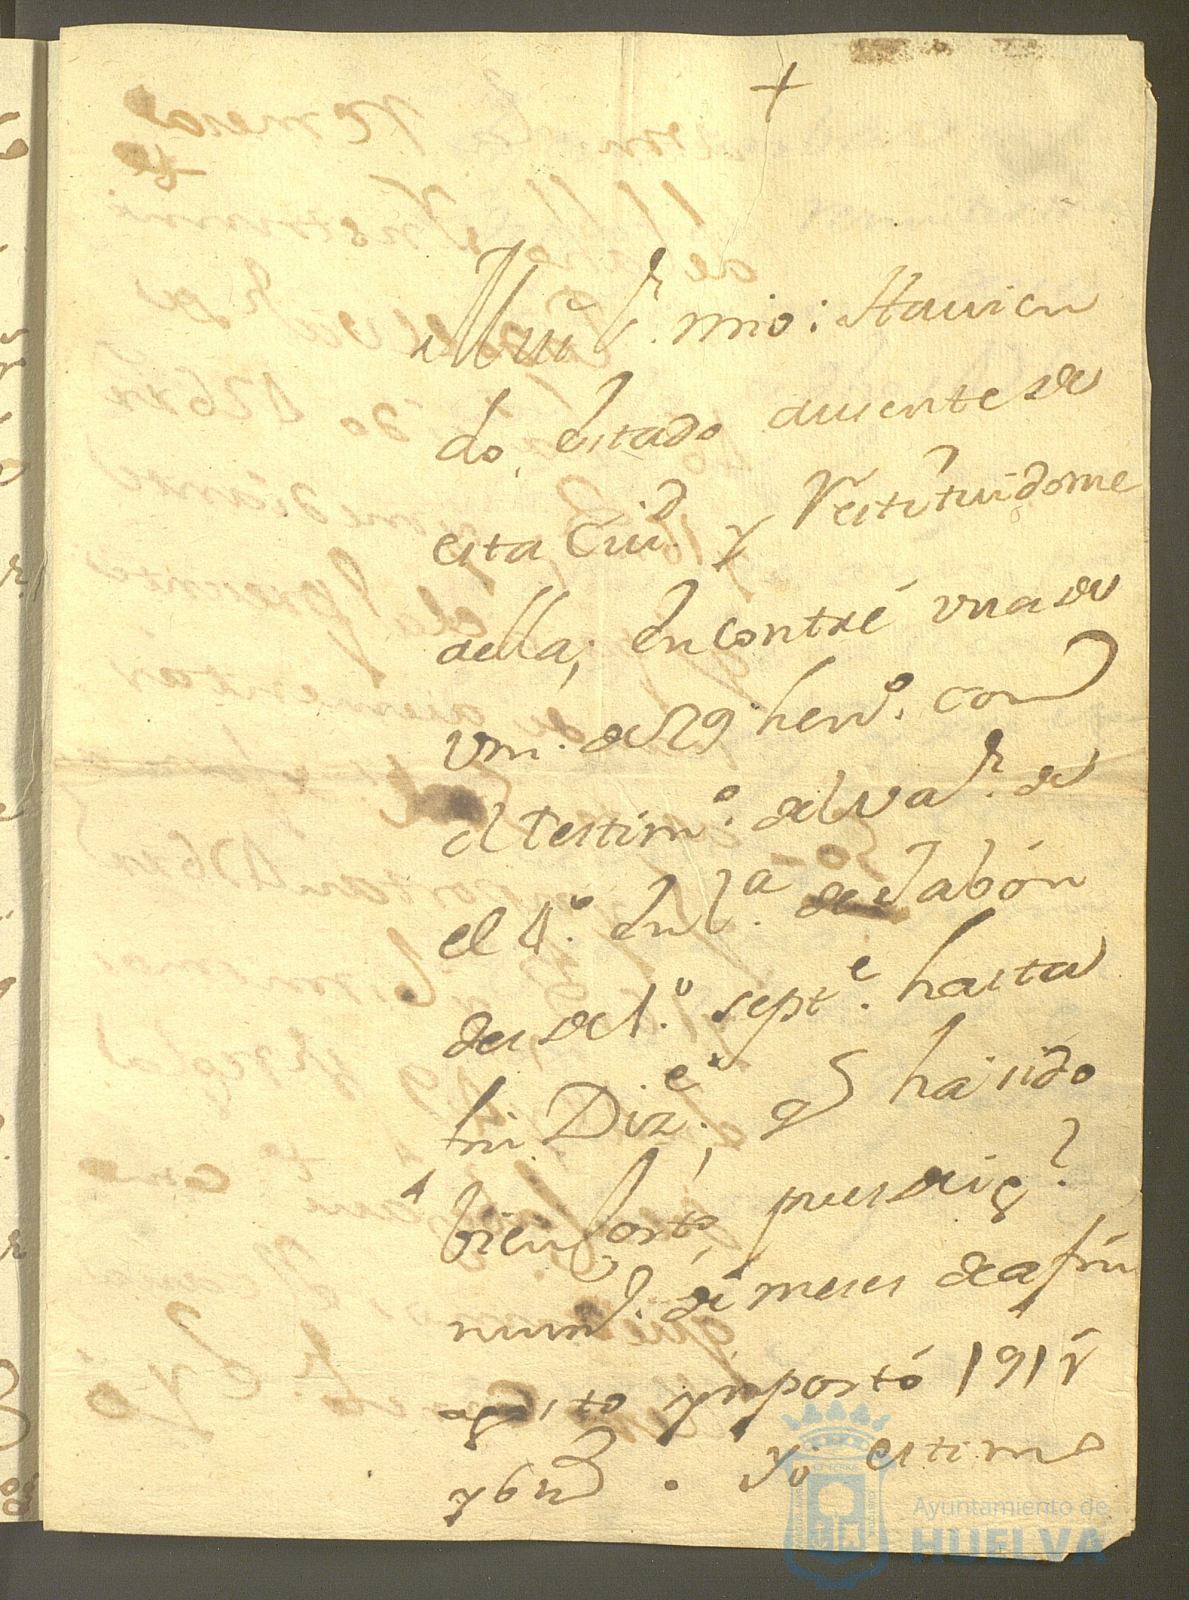 +
Mui Sr. mio: Hauien
do, estado ausente de
esta Ciud. y Restituidome
aella; encontré vna de
vm. de 29 henro. con
el testimo. del valr. de
el 4.º en l.ª de Jabón
desde 1.º septe. hasta
fin Dize.; q ha sido
bien corto, pues de igl
numo. de meses de a fin
agosto ymportó 1919 r
y 6 m. Yo estimo
Ayuntamiento de
HUELVA